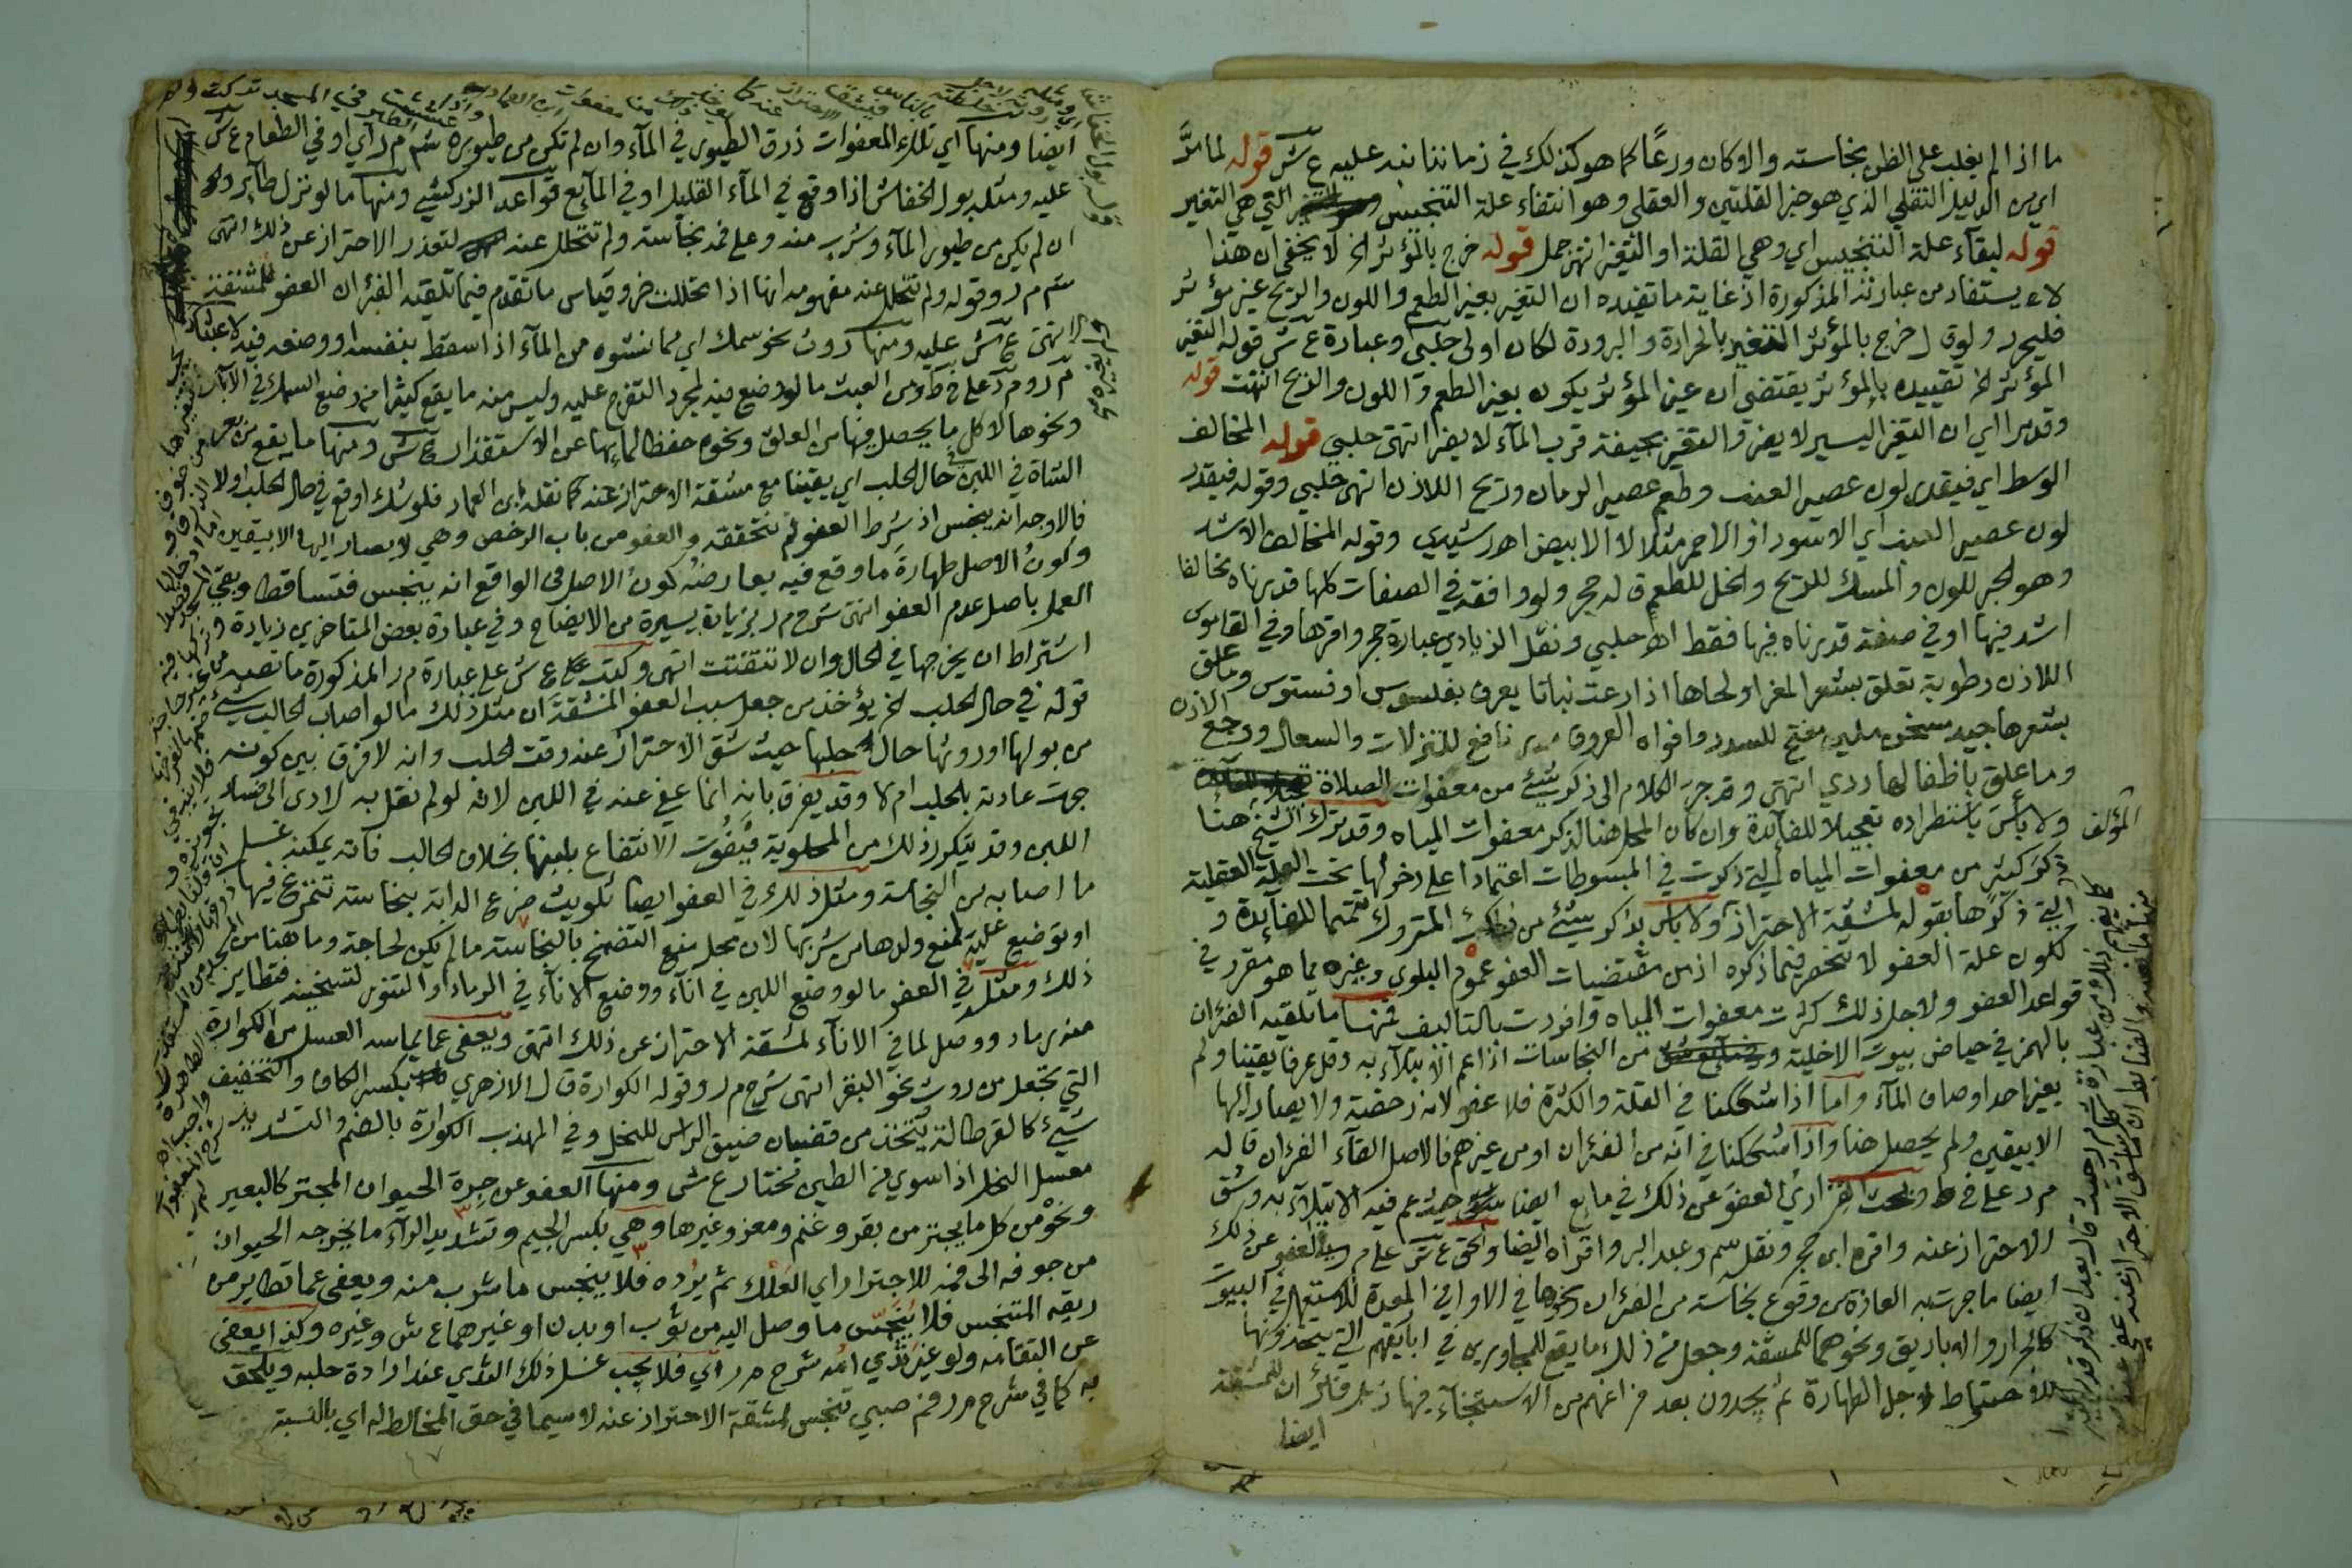 ما اذا لم يغلب على الظن نجاسته والا كان ورعًا كما هو كذلك في زماننا نبه عليه ع ش قوله لما مرَّ
اي من الدليل النقلي الذي هو خبر القلتين والعقلي وهو انتفاء علة التنجيس التي هي التغير
قوله لبقاء علة التنجيس اي وهي القلة او التغير انتهى جمل قوله خرج بالمؤثر الخ لا يخفى ان هذا
لا يستفاد من عبارته المذكورة اذ غاية ما تفيده ان التغير بغير الطعم واللون والريح غير مؤثر
فليحرر ولو قال خرج بالمؤثر التغير بالحرارة والبرودة لكان اولى حلبي وعبارة ع ش قوله التغير
المؤثر الخ تقييده بالمؤثر يقتضي ان غير المؤثر يكون بغير الطعم واللون والريح انتهت قوله
وقد مرا اي ان التغير اليسير لا يضر والتغير بجيفة قرب الماء لا يضر انتهى حلبي قوله المخالف
الوسط اي فيقدر لون عصير العنب وطعم عصير الرمان وريح اللاذن انتهى حلبي وقوله فيقدر
لون عصير العنب اي الاسود او الاحمر مثلا لا الابيض اهـ رشيدي وقوله المخالف الاشد
وهو الحبر للون والمسك للريح والخل للطعم قاله حجر ولو وافقه في الصفات كلها قدرناه مخالفا
اشد فيها او في صفة قدرناه فيها فقط اهـ حلبي ونقل الزيادي عبارة حجر واقرها وفي القاموس
اللاذن رطوبة تعلق بشعر المعز او لحاها اذا رعت نباتا يعرف بقلسوس او قستوس وما علق
بشعرها جيد مسخن ملين مفتح للسدد وافواه العروق مدر نافع للنزلات والسعال ووجع الاذن
وما علق باظفالها ردي انتهى وقد جر الكلام الى ذكر شيئ من معفوات الصلاة
ولا بأس باستطراده تعجيلا للفائدة وان كان المحل هنا لذكر معفوات المياه وقد ترك الشيخ هنا
المؤلف
ذكر كثير من معفوات المياه التي ذكرت في المبسوطات اعتمادا على دخولها تحت العلة العقلية
التي ذكرها بقوله لمشقة الاحتراز ولا باس بذكر شيئ من ذلك المتروك تتميما للفايدة و
لكون علة العفو لا تنحصر فيما ذكره اذ من مقتضيات العفو عموم البلوى وغيره مما هو مقرر في
قواعد العفو ولاجل ذلك كثرت معفوات المياه وافردت بالتاليف فمنها ما تلقيه الفئران
بالهمز في حياض بيوت الاخلية من النجاسات اذا عم الابتلاء به وقل عرفا يقينا ولم
يغير احد اوصاف الماء واما اذا شككنا في القلة والكثرة فلا عفو لانه رخصة ولا يصار اليها
الا بيقين ولم يحصل هنا واذا شككنا في انه من الفئران او من غيرهم فالاصل القاء الفئران قاله
م ر على خ ط وبحث الفزاري العفو عن ذلك في مايع ايضا حيث عم فيه الابتلاء به وشق
الاحتراز عنه واقره ابن حجر ونقل سم وعبد البر واقراه ايضا والحق ع ش على م ر بالعفو عن ذلك
ايضا ما جرت به العادة من وقوع نجاسة من الفئران ونحوها في الاواني المعدة للاستعمال في البيوت
كالجرار والاباريق ونحوهما للمشقة وجعل من ذلك ما يقع للمجاورين في اباريقهم التي يتخذونها
للاحتياط لاجل الطهارة ثم يجدون بعد فراغهم من الاستنجاء فيها زبل فئران للمشقة
ايضا
ايضا ومنها اي تلك المعفوات ذرق الطيور في الماء وان لم تكن من طيوره سم م ر اي او في الطعام ع ش
عليه ومثله بول الخفاش اذا وقع في الماء القليل او في المايع قواعد الزركشي ومنها ما لو نزل طاير ولو
ان لم يكن من طيور الماء وشرب منه وعلى فمه نجاسة ولم تتحلل عنه لتعذر الاحتراز عن ذلك انتهى
سم م ر وقوله ولم تتحلل عنه مفهومه انها اذا تحللت ضر وقياس ما تقدم فيما تلقيه الفئران العفو للمشقة
انتهى ع ش عليه ومنها روث نحو سمك اي مما نشوه من الماء اذا سقط بنفسه او وضعه فيه لا عبثا
م ر وم ر على خ ط ومن العبث ما لو وضع فيه لمجرد التفرج عليه وليس منه ما يقع كثيرا من وضع السمك في الابار
ونحوها لاكل ما يحصل فيها من العلق ونحوه حفظا لمائها عن الاستقذار ع ش ومنها ما يقع من بعر
الشاة في اللبن في حال الحلب اي يقينا مع مشقة الاحتراز عنه كما نقله ابن العماد فلو شك اوقع في حال الحلب اولا
فالاوجه انه ينجس اذ شرط العفو لم نتحققه والعفو من باب الرخص وهي لا يصار اليها الا بيقين
وكون الاصل طهارة ما وقع فيه يعارضه كون الاصل في الواقع انه ينجس فتساقطا وبقي
العمل باصل عدم العفو انتهى شرح م ر بزيادة يسيرة من الايضاح وفي عبارة بعض المتاخرين زيادة
اشتراط ان يخرجها في الحال وان لا تتفتت انتهى وكتب ع ش على عبارة م ر المذكورة ما نصه
قوله في حال الحلب الخ يؤخذ من جعل سبب العفو المشقة ان مثل ذلك ما لو اصاب الحالب شيئ
من بولها او روثها حال حلبها حيث شق الاحتراز عنه وقت الحلب وانه لا فرق بين كونه
جرت عادته بالحلب ام لا وقد يفرق بانه انما عفي عنه في اللبن لانه لو لم نقل به لادى الى فساد
اللبن وقد يتكرر ذلك من المحلوبة فيفوت الانتفاع بلبنها بخلاف الحالب فانه يمكنه غسل
ما اصابه من النجاسة ومثل ذلك في العفو ايضا تلويث ضرع الدابة بنجاسة تتمرغ فيها
او توضع عليه لمنع ولدها من شربها لان محل منع التضمخ بالنجاسة ما لم يكن لحاجة وما هنا من
ذلك ومثله في العفو ما لو وضع اللبن في اناء ووضع الاناء في الرماد او التنور لتسخينه فتطاير
منه رماد ووصل لما في الاناء لمشقة الاحتراز عن ذلك انتهى ويعفى عما يماسه العسل من الكوارة
التي تجعل من روث نحو البقر انتهى شرح م ر وقوله الكوارة قال الازهري بكسر الكاف والتخفيف
شيئ كالقرطالة يتخذ من قضبان ضيق الراس للنحل وفي المهذب الكوارة بالضم والتشديد
معسل النحل اذا سوي من الطين مختار ع ش ومنها العفو عن جرة الحيوان المجتر كالبعير
ونحوه من كل ما يجتر من بقر وغنم ومعز وغيرها وهي بكسر الجيم وتشديد الراء ما يخرجه الحيوان
من جوفه الى فمه للاجترار اي العلك ثم يرده فلا ينجس ما شرب منه ويعفى عما تطاير من
ريقه المتنجس فلا ينجس ما وصل اليه من ثوب او بدن او غيرهما ع ش وغيره وكذا يعفى
عن التقامه ولو غير ثدي امه شرح م ر اي فلا يجب غسل ذلك الثدي عند ارادة حلبه ويلحق
به كما في شرح م ر فم صبي تنجس لمشقة الاحتراز عنه لا سيما في حق المخالط له اي بالنسبة